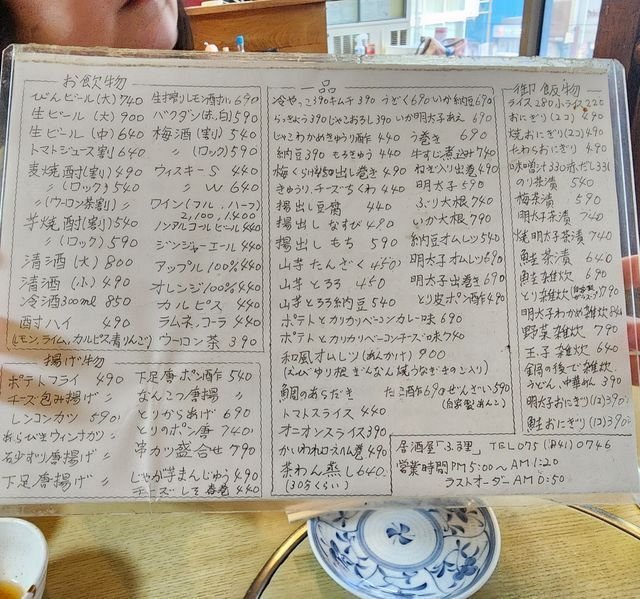 お飲物
びんビール(大)740
生ビール(大)900
生ビール(中)640
トマトジュース割640
麦焼酎(割)490
〃(ロック)540
〃(ウーロン茶割)〃
芋焼酎(割)540
〃(ロック)590
清酒(大)800
清酒(小)490
冷酒300ml 850
酎ハイ 490
(レモン,ライム,カルピス,青りんご)
生搾りレモン酎ハイ690
バクダン(赤,白)590
梅酒(割)540
〃(ロック)590
ウィスキーS 440
〃 W 640
ワイン(フル,ハーフ)
2,100,1,400
ノンアルコールビール440
ジンジャーエール440
アップル100%440
オレンジ100%440
カルピス 440
ラムネ,コーラ 440
ウーロン茶 390
揚げ物
ポテトフライ 490
チーズ包み揚げ 〃
レンコンカツ 590
あらびきウィンナカツ 〃
砂ずり唐揚げ 〃
下足唐揚げ 〃
下足唐ポン酢 540
なんこつ唐揚 〃
とりからあげ 690
とりのポン唐 740
串カツ盛合せ 790
じゃが芋まんじゅう 490
チーズしそ春巻 440
一品
冷やっこ390 キムチ390 うざく690 いか納豆690
らっきょう390 じゃこおろし390 いか明太子あえ 690
じゃこわかめきゅうり酢 440 う巻き 690
納豆390 もろきゅう 440 牛すじ煮込み740
梅くらげ450 出し巻き 490 ねぎ入り出巻490
きゅうり,チーズちくわ 440 明太子 590
揚出し豆腐 440 ぶり大根 740
揚出しなすび 490 いか大根 790
揚出しもち 590 納豆オムレツ540
山芋たんざく 450 明太子オムレツ690
山芋とろろ 450 明太子出巻き 690
山芋とろろ納豆 540 とり皮ポン酢490
ポテトとカリカリベーコンカレー味 690
ポテトとカリカリベーコンチーズ味740
和風オムレツ(あんかけ) 900
(えび ゆり根 ぎんなん 焼うなぎきのこ入り)
鯛のあらだき たこ酢690 ぜんざい590
(自家製あんこ)
トマトスライス 440
オニオンスライス390
かいわれロースハム巻 490
茶わん蒸し 640
(30分くらい)
御飯物
ライス280 小ライス220
おにぎり(2コ) 490
焼おにぎり(2コ)490
たわらおにぎり 490
味噌汁330 赤だし330
のり茶漬 540
梅茶漬 590
明太子茶漬 740
焼明太子茶漬 740
鮭茶漬 640
鮭雑炊 690
とり雑炊
明太子わかめ雑炊 840
野菜雑炊 790
玉子雑炊 640
鍋の後で雑炊
うどん,中華めん 390
明太子おにぎり(1コ)390
鮭おにぎり(1コ)390
居酒屋「ふる里」 TEL 075(841)0746
営業時間PM5:00〜AM1:20
ラストオーダーAM0:50